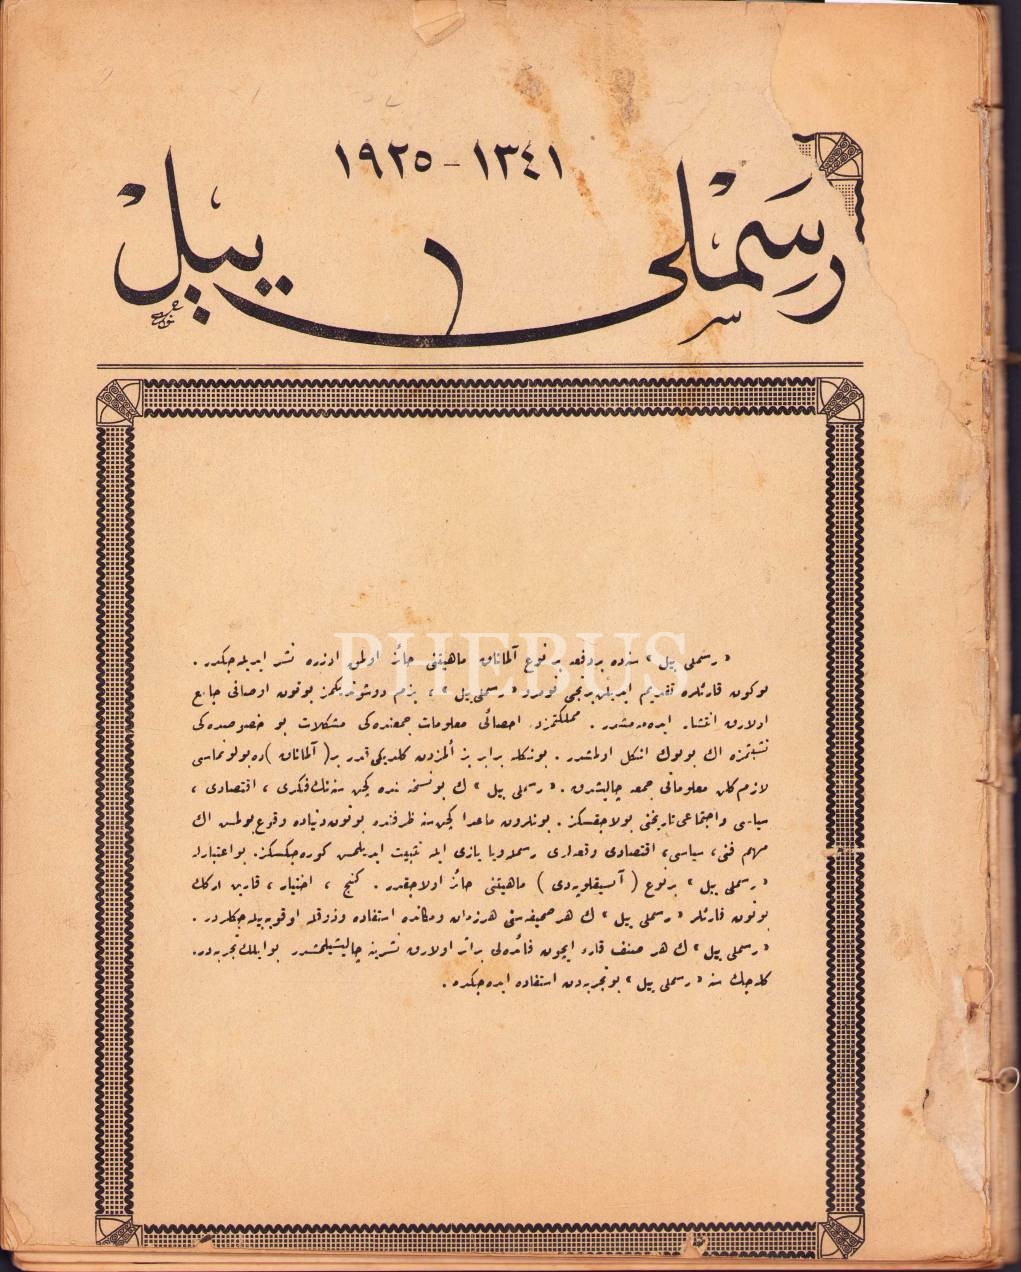 ١٣٤١ - ١٩٢٥
رسملی ییل
PHEBUS
« رسملی ییل » سنه‌ده بر دفعه بر نوع آلماناق ماهیتنی حائز اولمق اوزره نشر ایدیله‌جکدر .
بوکون قارئلره تقدیم ایدیلن برنجی نومرو « رسملی ییل » ، بزم دوشوندیکمز بوتون اوصافی جامع
اولارق انتشار ایده‌مه‌مشدر . مملکتمزده احصائی معلومات جمعنده‌کی مشکلات بو خصوصده‌کی
تشبثمزه اك بویوك انکل اولمشدر . بونکله برابر بز المزدن کلدیکی قدر بر ( آلماناق ) ده بولونماسی
لازم کلن معلوماتی جمعه چالیشدق . « رسملی ییل » ك بو نسخه سنده کچن سنه‌نك فکری ، اقتصادی ،
سیاسی و اجتماعی تاریخنی بولاجقسکز . بونلردن ماعدا کچن سنه ظرفنده بوتون دنیاده وقوع بولمش اك
مهم فنی ، سیاسی ، اقتصادی وقعه‌لری رسمله ویا یازی ایله تثبیت ایدیلمش کوره‌جکسکز. بو اعتبارله
« رسملی ییل » بر نوع ( آنسیقلوپه‌دی ) ماهیتنی حائز اولاجقدر . کنج ، اختیار ، قادین ارکك
بوتون قارئلر « رسملی ییل » ك هر صحیفه سنی هر زمان ومکانده استفاده وذوقله اوقویه‌بیله‌جکلردر .
« رسملی ییل » ك هر صنف قارء ایچون فائده‌لی بر اثر اولارق نشرینه چالیشیلمشدر بو ایلك تجربه‌در.
کله‌جك سنه « رسملی ییل » بو تجربه‌دن استفاده ایده‌جکدر .